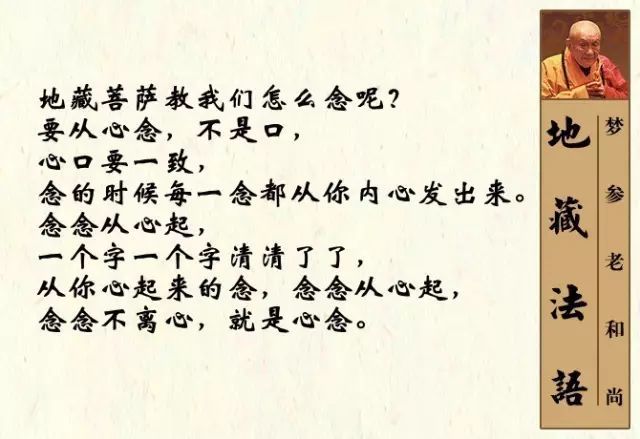 地藏菩萨教我们怎么念呢？
要从心念，不是口，
心口要一致，
念的时候每一念都从你内心发出来。
念念从心起，
一个字一个字清清了了，
从你心起来的念，念念从心起，
念念不离心，就是心念。
地藏法語
梦参老和尚